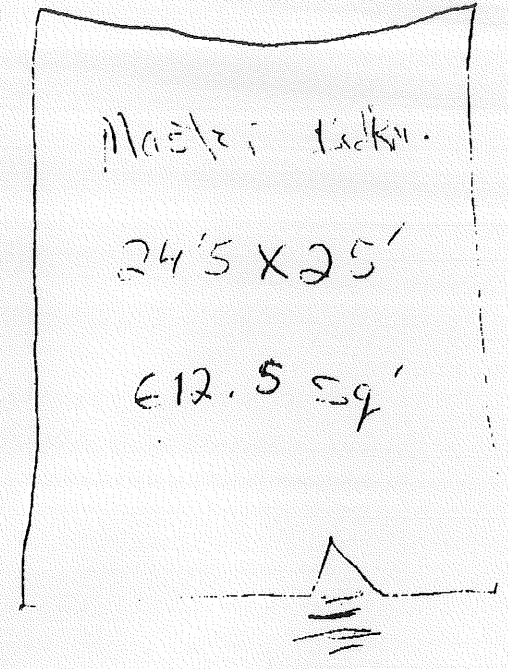 Master Bdkm.
24'5 X 25'
612.5 Sq'